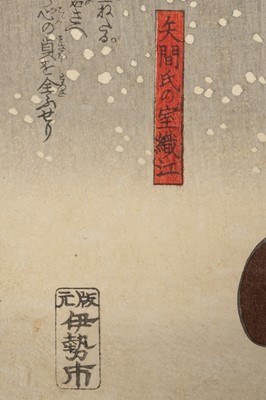 矢間氏の室織江
心の貞を全ふせり
版元
伊勢市